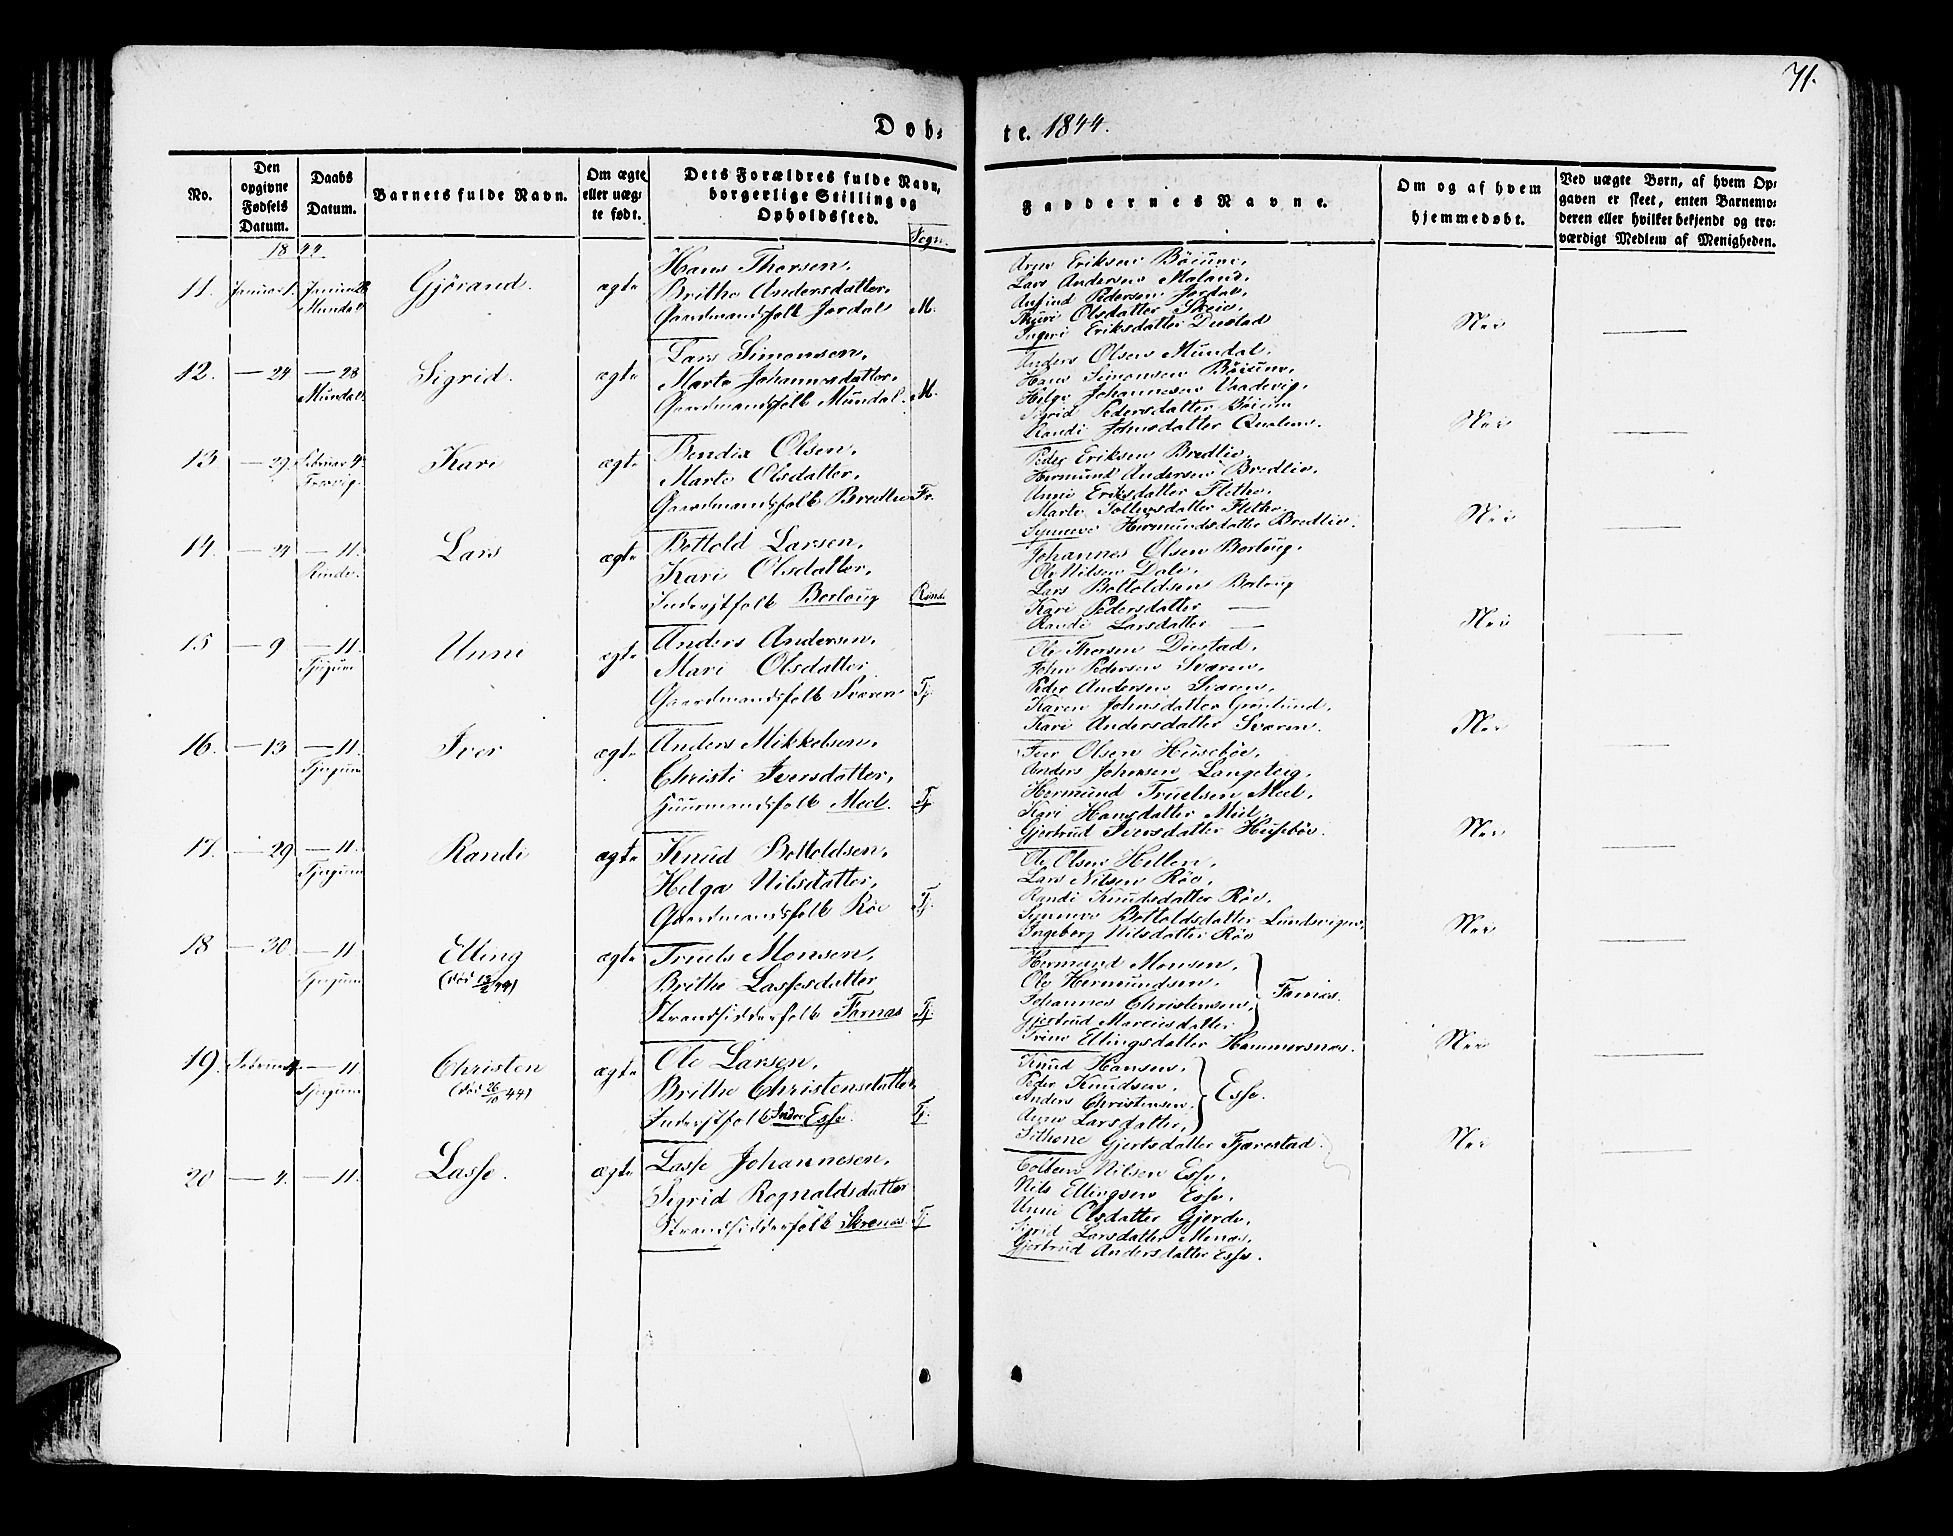 71.
Døb-
te. 1844.
No.
Den opgivne Fødsels Datum.
Daabs Datum.
Barnets fulde Navn.
Om ægte eller uægte født.
Dets Forældres fulde Navn, borgerlige Stilling og Opholdssted.
Sogn.
Faddernes Navne.
Om og af hvem hjemmedøbt.
Ved uægte Børn, af hvem Opgaven er skeet, enten Barnemoderen eller hvilket bekjendt og troværdigt Medlem af Menigheden.
1844
11. Januar 1. Januar 28 Mundal Gjørand. ægte
Hans Thorsen,
Brithe Andersdatter,
Gaardmandsfolk Jordal M.
Arne Eriksen Bøium,
Lars Andersen Maland,
Anfind Pedersen Jordal,
Thuri Olsdatter Skeie,
Ingeri Eriksdatter Distad
Nei
12. — 24 — 28 Mundal Sigrid. ægte
Lars Simonsen,
Marte Johannesdatter,
Gaardmandsfolk Mundal. M.
Anders Olsen Mundal,
Hans Simonsen Bøium,
Helge Johannesen
Sigrid Pedersdatter Bøium
Randi Johnsdatter
Nei
13 — 29 Februar 4. Kari ægte
Bendix Olsen,
Marte Olsdatter,
Gaardmandsfolk Bredlie Fr.
Peder Eriksen Bredlie,
Hermund Andersen Bredlie,
Anne Eriksdatter Flethe,
Marte
Synneve Hermundsdatter Bredlie.
Nei
14. — 24 — 11. Rinde. Lars ægte
Bottold Larsen,
Kari Olsdatter,
Inderstfolk Borloug Rinde
Johannes Olsen Borloug,
Ole Nilsen Dale,
Lars Bottoldsen Borloug
Kari Pedersdatter —
Randi Larsdatter —
Nei
15 — 9 — 11 Tjugum Unni ægte
Anders Andersen,
Mari Olsdatter
Gaardmandsfolk Sværen Tj.
Ole Thorsen Distad,
John Pedersen Sværen,
Peder Andersen Sværen,
Karen Johnsdatter Grønlund,
Kari Andersdatter Sværen.
Nei
16. — 13 — 11. Tjugum Iver ægte
Anders Mikkelsen,
Christi Iversdatter,
Huusmandsfolk Meel. Tj
Iver Olsen Husebøe,
Anders Johnsen Langeteig,
Hermund Truelsen Meel,
Kari Hansdatter Meel,
Gjertrud Iversdatter Husebøe.
Nei
17. — 29 — 11. Tjugum Randi ægte
Knud Bottoldsen,
Helga Nilsdatter,
Gaardmandsfolk Røe Tj.
Ole Olsen Hellen,
Lars Nilsen Røe,
Randi Knudsdatter Røe,
Synneve Bottoldsdatter
Ingeborg Nilsdatter Røe
Nei
18 — 30. — 11 Tjugum Elling (død 13/2 44) ægte
Truels Monsen,
Brithe Lassesdatter
Strandsidderfolk Farnæs Tj.
Hermund Monsen,
Ole Hermundsen,
Johannes Christensen,
Gjertrud Marcusdatter
Farnæs.
Trine Ellingsdatter Hammersnæs.
Nei
19. Februar 4. — 11 Tjugum Christen (død 26/10 44) ægte
Ole Larsen,
Brithe Christensdatter
Inderstfolk Indre Esse. Tj.
Knud Hansen,
Peder Knudsen,
Anders Christensen,
Anne Larsdatter,
Esse.
Sithene Gjertsdatter Fjærestad
Nei
20 — 4. — 11. Lasse. ægte
Lasse Johannesen,
Sigrid Rognaldsdatter
Strandsidderfolk Skrenæs. Tj
Nilsen Esse,
Nils Ellingsen Esse,
Unni Olsdatter Gjerde,
Sigrid Larsdatter Menæs,
Gjertrud Andersdatter Esse.